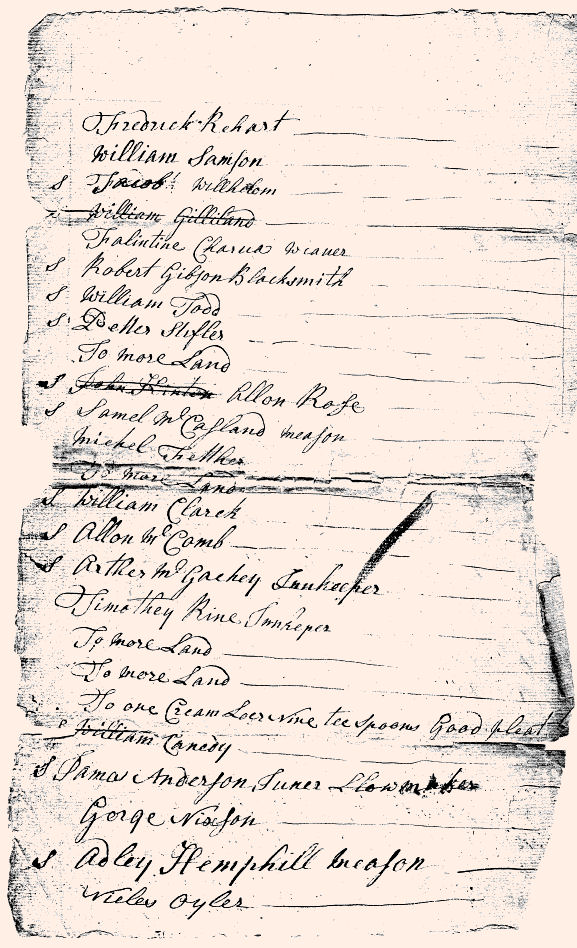 Fredrick Rehart
William Samson
S Jacob Willhelom
William Gilliland
Falintine Charua weauer
S Robert Gibson Blacksmith
S William Todd
S Petter Stifler
To more Land
S John Hinton Allon Rose
S Samel McCasland meason
michel Fetther
To more Land
S William Clarck
S Allon McComb
S Arther McGachey Innkeeper
Timothey Rine Innkeper
To more Land
To more Land
To one Cream nine tee spoons Good pleat
S William Canedy
S James Anderson Juner
Gorge Nixson
S Adley Hemphill meason
Oyler